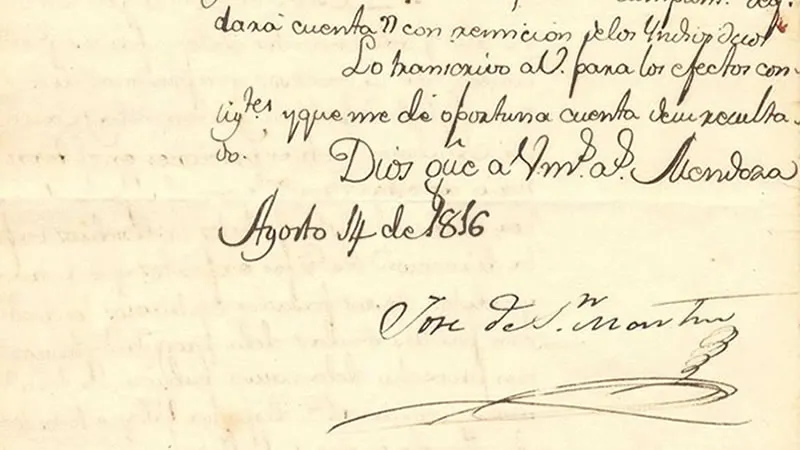 dará cuenta con remición de los Yndividuos
Lo transcrivo a V. para los efectos con-
sigtes, y que me dé oportuna cuenta de su resulta-
do.
Dios güe a V. ms. as. Mendoza
Agosto 14 de 1816
José de Sn Martin